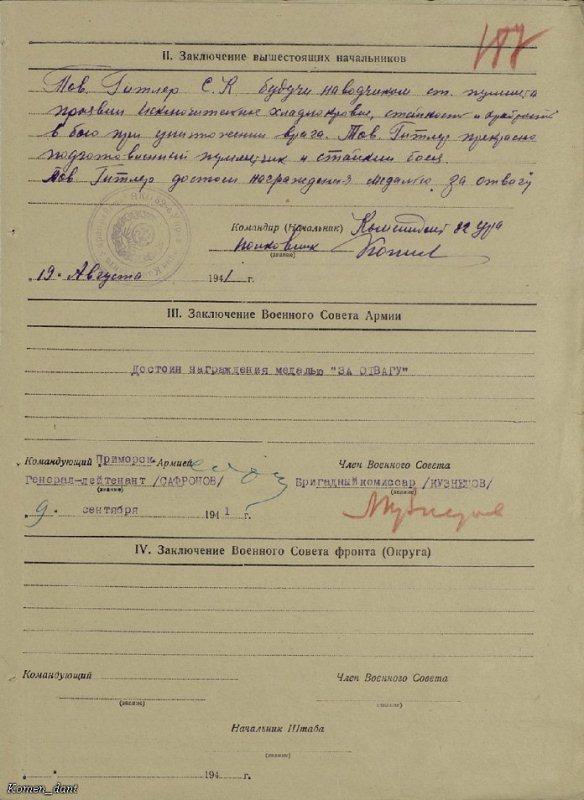 187
II. Заключение вышестоящих начальников
Тов. Гитлер С.К будучи наводчиком ст. пулимета
проявил исключительное хладнокровие, стойкость и храбрость
в бою при уничтожении врага. Тов. Гитлер прекрасно
подготовленный пулиметчик и стойкий боец.
Тов Гитлер достоен награждения медалью за отвагу
Командир (Начальник) Комендант 82 ура
полковник
(звание)
19. Августа 1941 г.
III. Заключение Военного Совета Армии
Достоин награждения медалью "ЗА ОТВАГУ"
Командующий Приморск. Армией
Генерал-лейтенант /САФРОНОВ/
(звание)
Член Военного Совета
Бригадный комиссар /КУЗНЕЦОВ/
(звание)
9. сентября 1941 г.
IV. Заключение Военного Совета фронта (Округа)
Командующий
(звание)
Член Военного Совета
(звание)
Начальник Штаба
(звание)
194 г.
Komen_dant